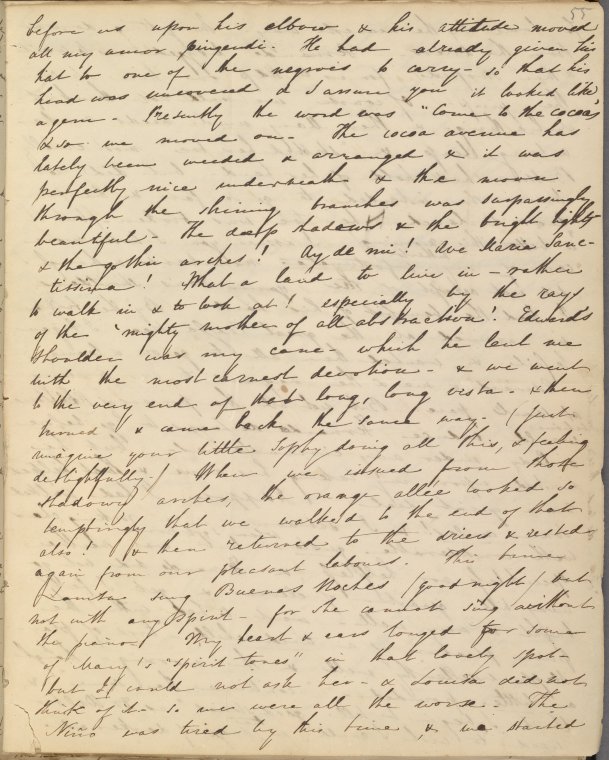 55
before us upon his elbow & his attitude moved
all my amor pingendi. He had already given his
hat to one of the negroes to carry - so that his
head was uncovered & I assure you it looked like
a gem - Presently the word was "Come to the cocoas"
& so we moved on - The cocoa avenue has
lately been weeded & arranged & it was
perfectly nice underneath & the moon
through the shining branches was surpassingly
beautiful - The deep shadows & the bright lights
& the gothic arches! Ay de mi! Ave Maria Sanc-
tissima! What a land to live in - rather
to walk in & to look at! especially by the rays
of the "mighty mother of all abstraction". Edward's
shoulder was my cane - which he lent me
with the most earnest devotion - & we went
to the very end of that long, long vista - & then
turned & came back the same way - (Just
imagine your little Sophy doing all this, & feeling
delightfully.) When we issued from those
shadowy arches, the orange allée looked so
temptingly that we walked to the end of that
also! & then returned to the driers & rested
again from our pleasant labours. This time
Louisa sung Buenas Noches (good night) but
not with any spirit - for she cannot sing without
the piano. My heart & ears longed for some
of Mary's "spirit tones" in that lovely spot -
but I could not ask her - & Louisa did not
think of it - so we were all the worse. The
Niño was tired by this time, & we started